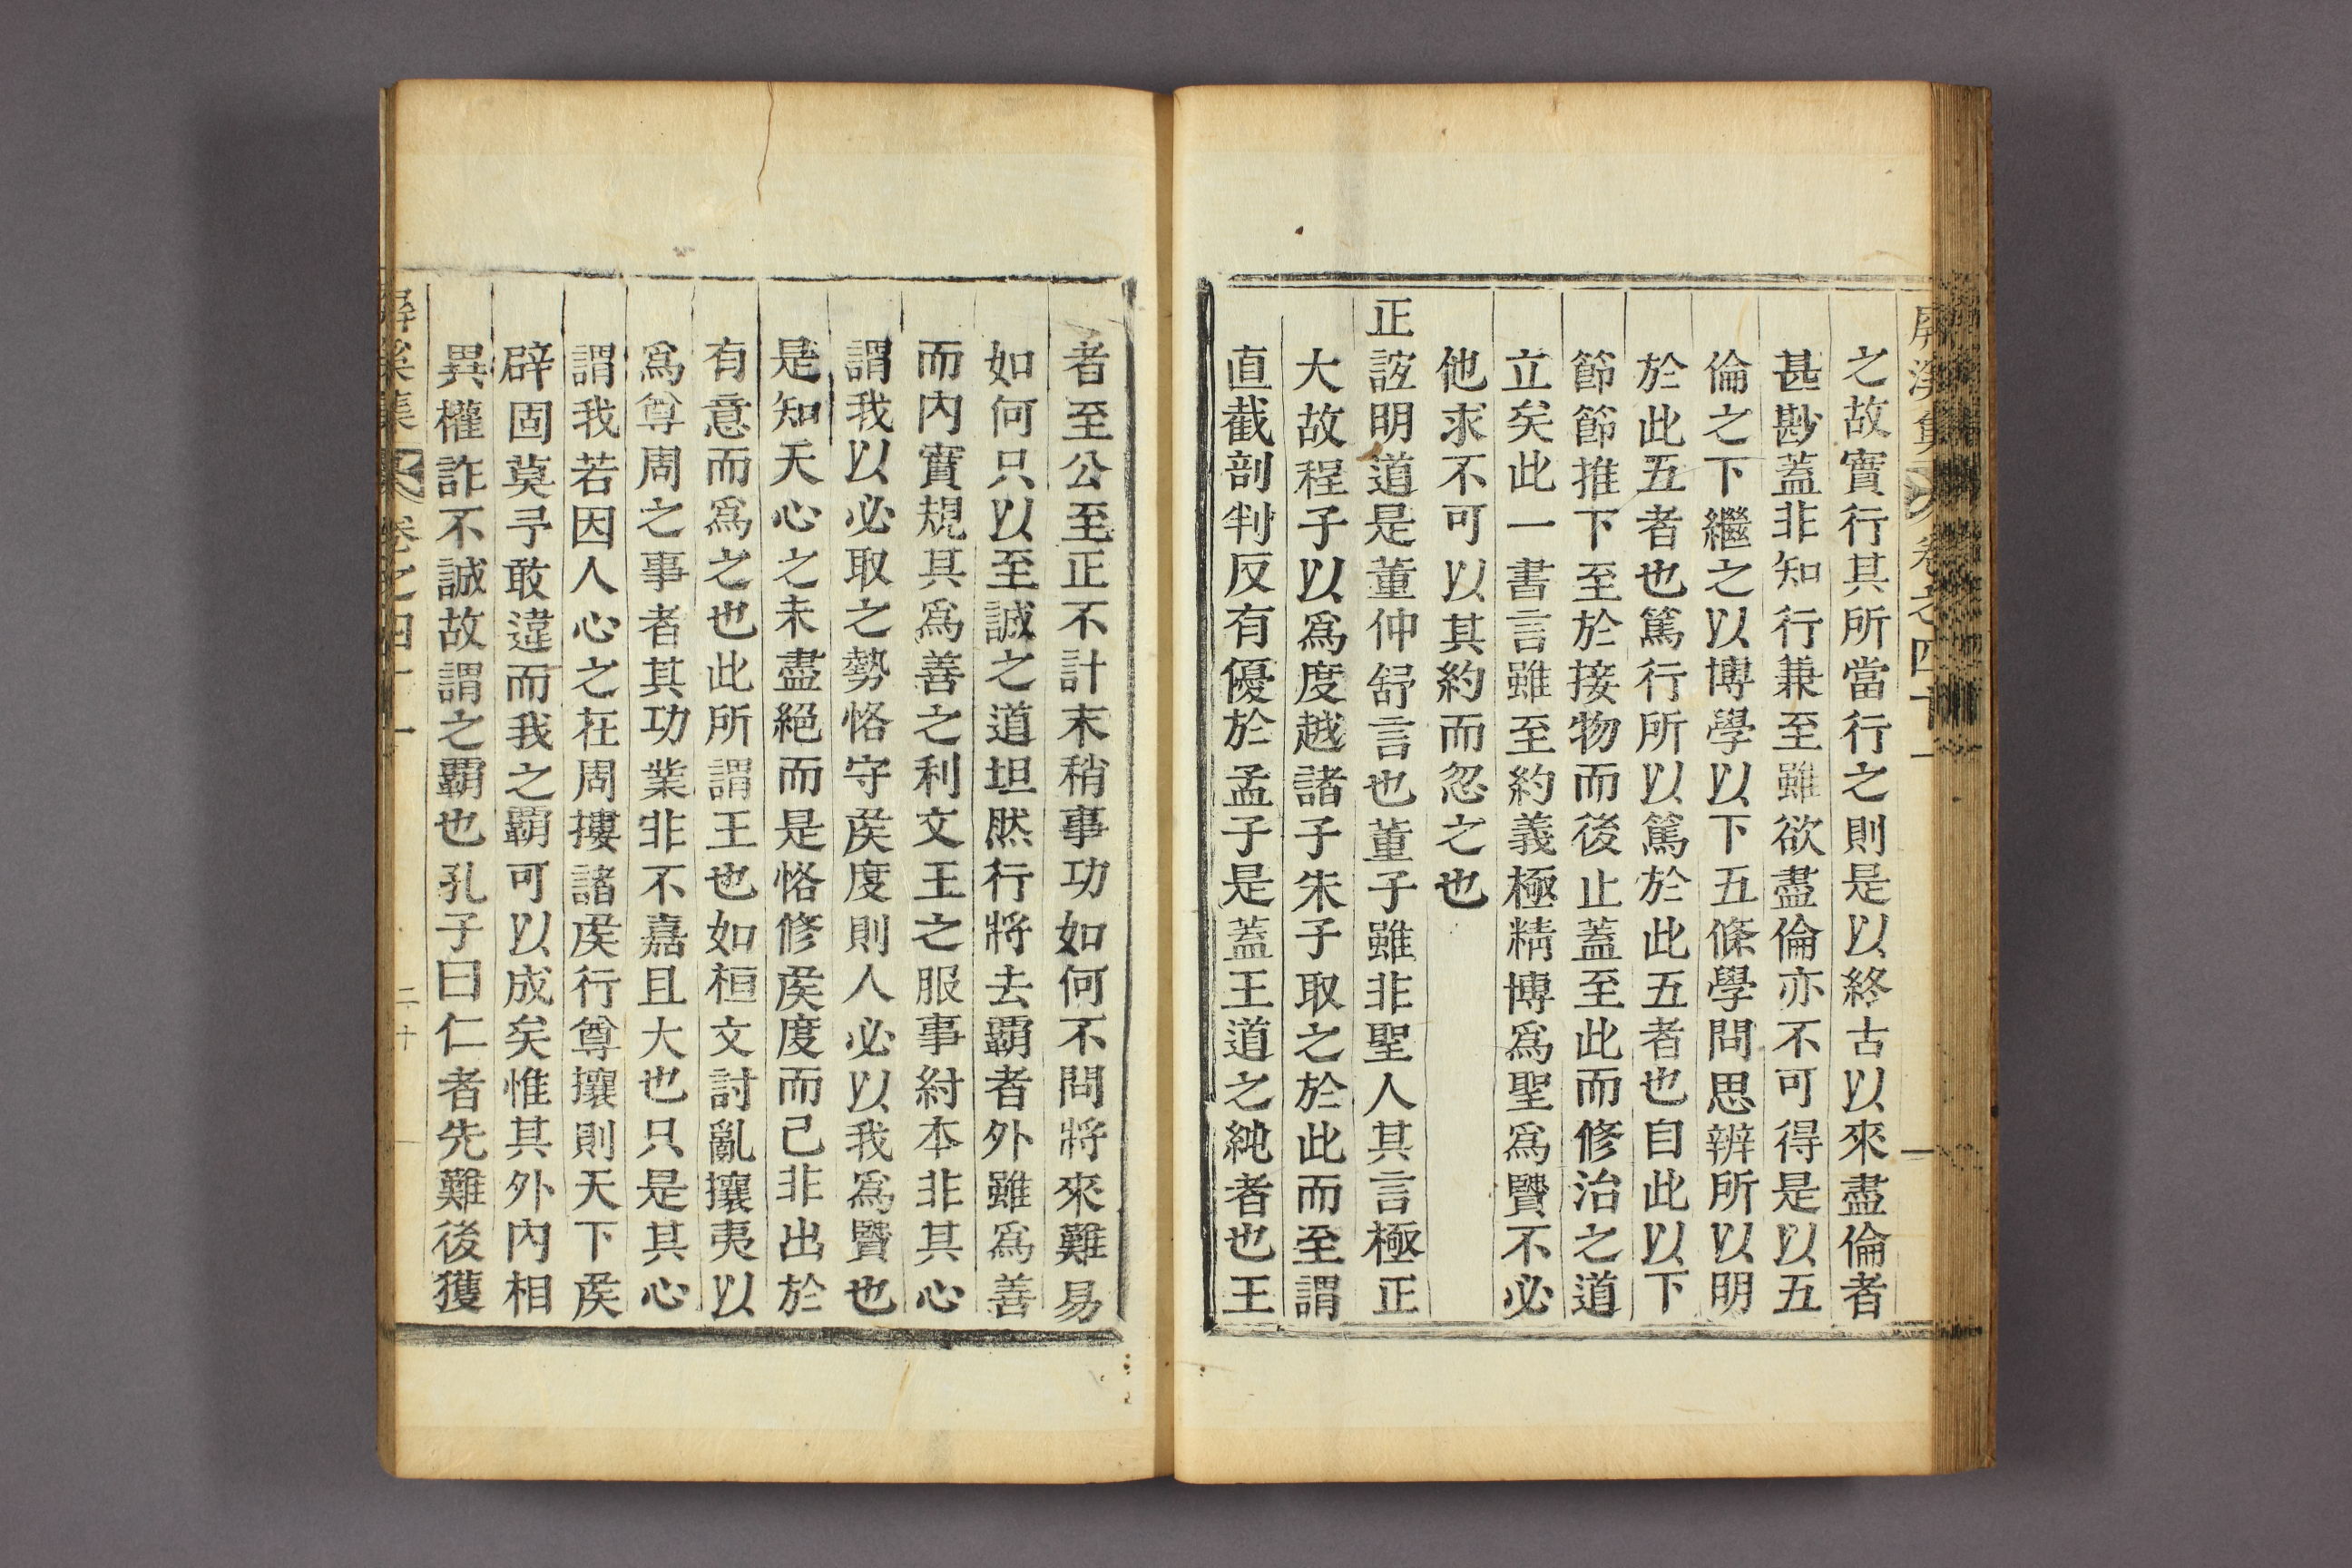 屛溪集 卷之四十一
之故實行其所當行之則是以終古以來盡倫者
甚尠蓋非知行兼至雖欲盡倫亦不可得是以五
倫之下繼之以博學以下五條學問思辨所以明
於此五者也篤行所以篤於此五者也自此以下
節節推下至於接物而後止蓋至此而修治之道
立矣此一書言雖至約義極精博爲聖爲賢不必
他求不可以其約而忽之也
正誼明道是董仲舒言也董子雖非聖人其言極正
大故程子以爲度越諸子朱子取之於此而至謂
直截剖判反有優於孟子是蓋王道之純者也王
者至公至正不計末稍事功如何不問將來難易
如何只以至誠之道坦然行將去覇者外雖爲善
而內實規其爲善之利文王之服事紂本非其心
謂我以必取之勢恪守矦度則人必以我爲賢也
是知天心之未盡絕而是恪修矦度而已非出於
有意而爲之也此所謂王也如桓文討亂攘夷以
爲尊周之事者其功業非不嘉且大也只是其心
謂我若因人心之在周摟諸矦行尊攘則天下矦
辟固莫予敢違而我之覇可以成矣惟其外內相
異權詐不誠故謂之覇也孔子曰仁者先難後獲
屛溪集 卷之四十一 二十